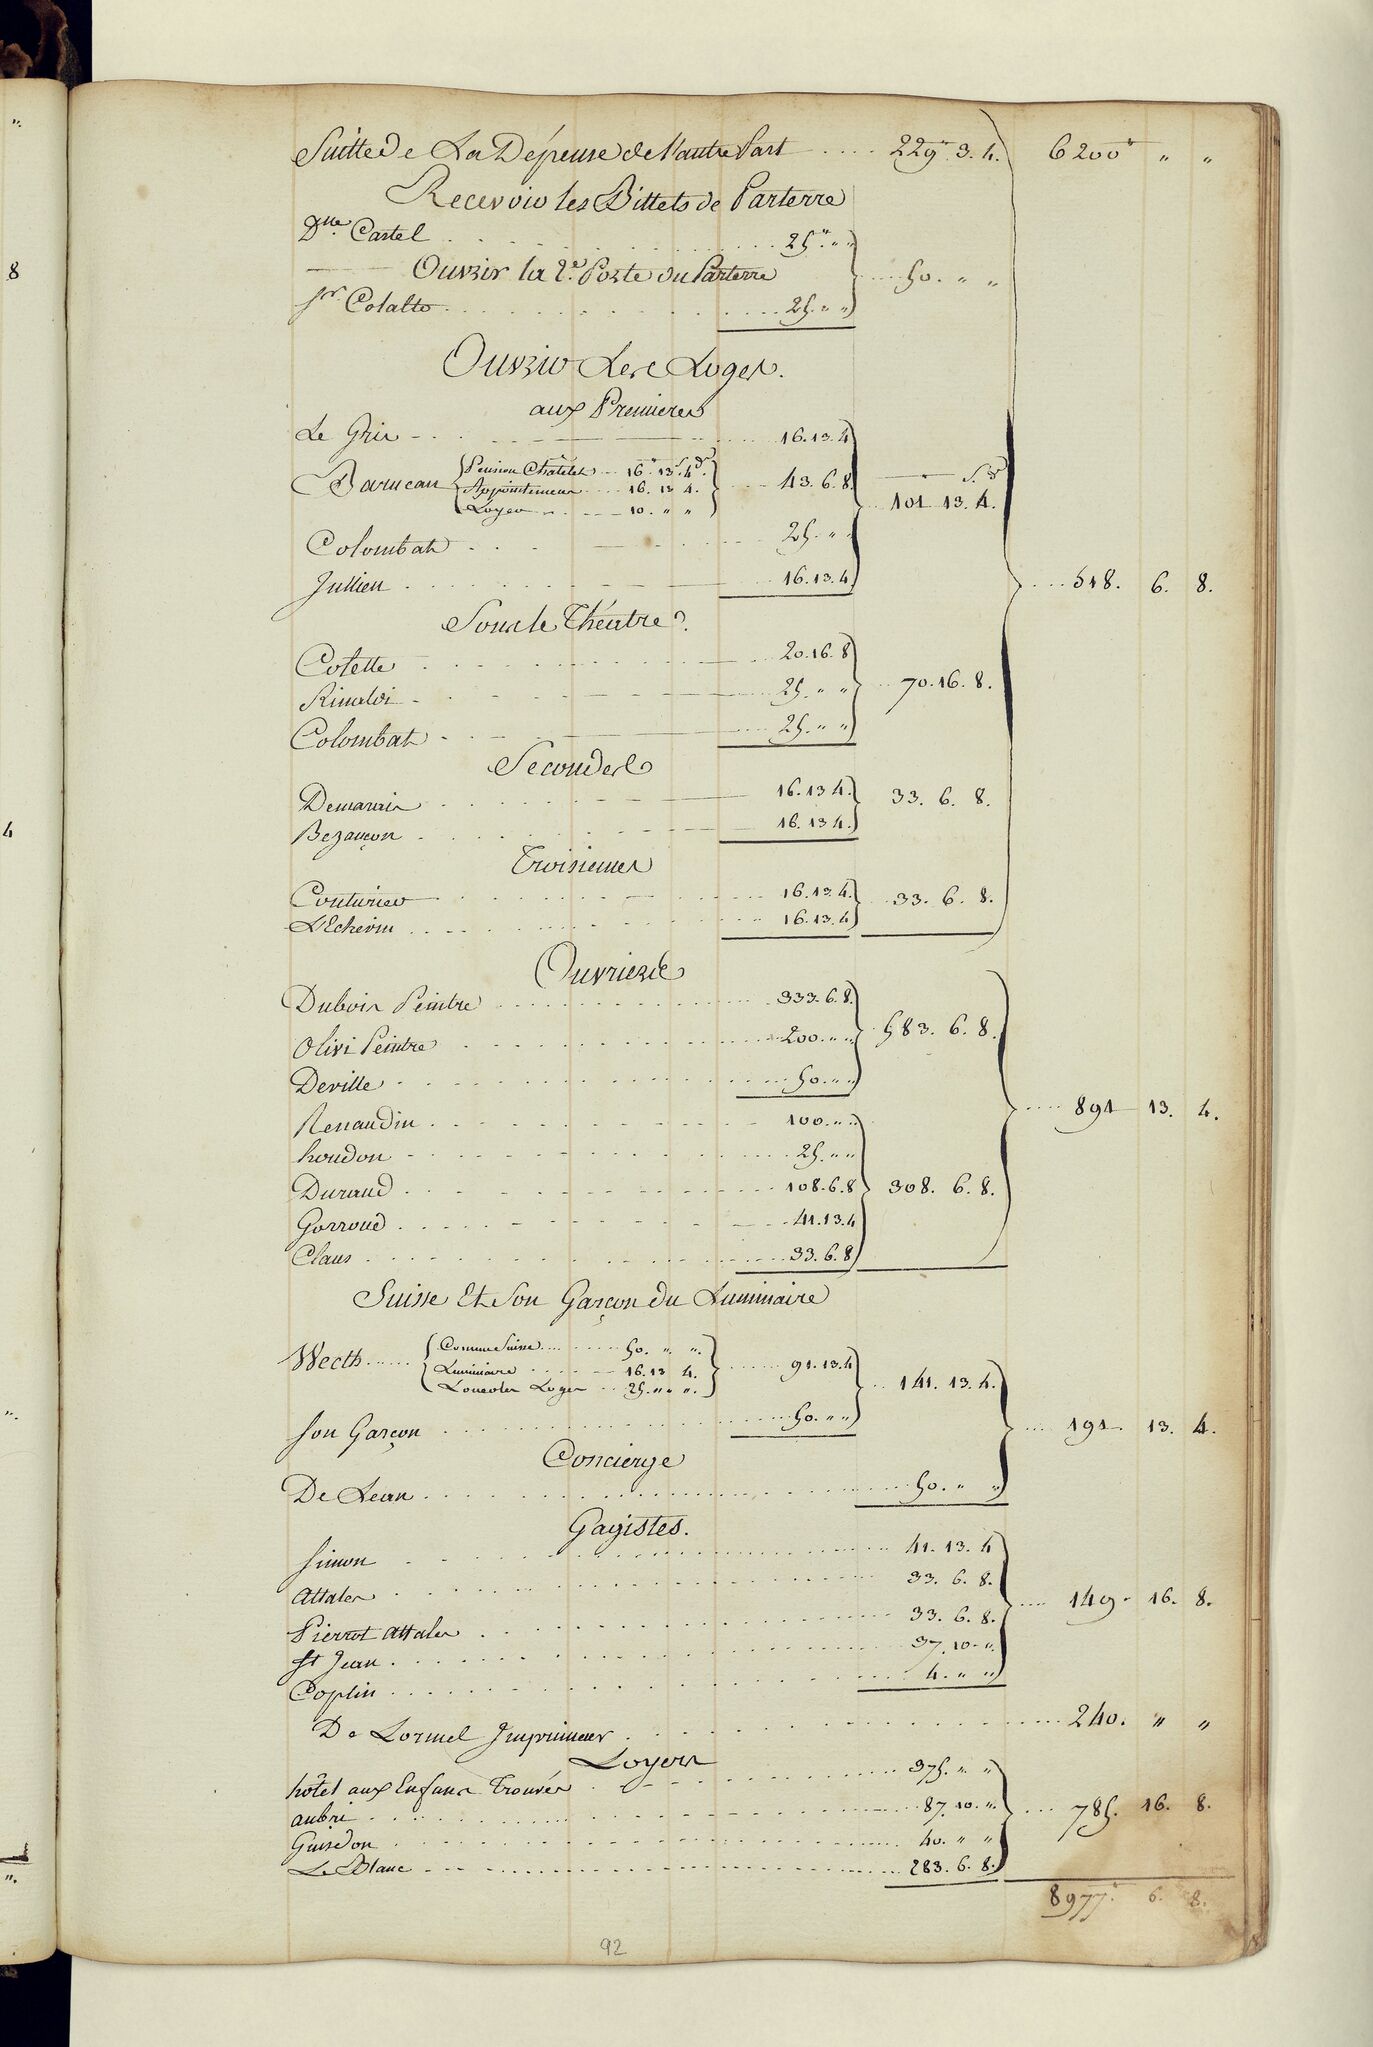 Suitte de La Dépense de l'autre Part .... 229.# 3. 4. 6200# " "
Recevoir les Billets de Parterre
Dlle. Castel . . . 25.# " "
Ouvrir la 2e. Porte du Parterre ... 50. " "
Sr. Colalto . . . 25. " "
Ouvrir Les Loges.
aux Premieres
Le Gris . . . 16.13.4
Baruean Pension Châtelet ... 16.# 13.s 4.d ... 43.6.8. s. d
Appointemens ... 16. 13 4. ... 101 13. 4.
Loyer ... 10. " "
Colombat . . . 25. " "
Jullien . . . 16.13.4 .... 518. 6. 8.
Sous le Théatre
Colette . . . 20.16.8
Rinaldi . . . 25. " " ... 70.16.8.
Colombat . . . 25. " "
Secondes
Demarais . . . 16.13 4. 33. 6. 8.
Bezançon . . . 16.13 4.
Troisiemes
Couturier . . . 16.13.4. ... 33. 6. 8.
L'Echevin . . . 16.13.4
Ouvriers
Dubois Peintre . . . 333.6.8.
Olivi Peintre . . . 200. " " 583. 6. 8.
Deville . . . 50. " "
Renaudin . . . 100. " " .... 891 13. 4.
houdon . . . 25. " "
Durand . . . 108.6.8 308. 6. 8.
Gorroud . . . 41.13.4
Claus . . . 33.6.8
Suisse Et Son Garçon du Luminaire
Wecth ..... Comme Suisse ... 50. " ". ... 91.13.4
Luminaire ... 16.13 4. ... 141. 13. 4.
Loue les Loges ... 25. " ".
son Garçon . . . 50. " " .... 191. 13. 4.
Concierge
De Lean . . . 50. " "
Gagistes.
Simon . . . 41. 13. 4
Attales . . . 33. 6. 8.
Pierrot Attales . . . 33. 6. 8. .... 149. 16. 8.
St Jean . . . 37. 10. ".
Coplin . . . 4. " "
De Lormel Imprimeur . . . 240. " "
Loyers
hôtel aux Enfans Trouvés . . . 375. " "
aubri . . . 87. 10. ". ... 785. 16. 8.
Guiedon . . . 40. " "
Le Blanc . . . 283. 6. 8.
8977.# 6. 8.
92
8
4